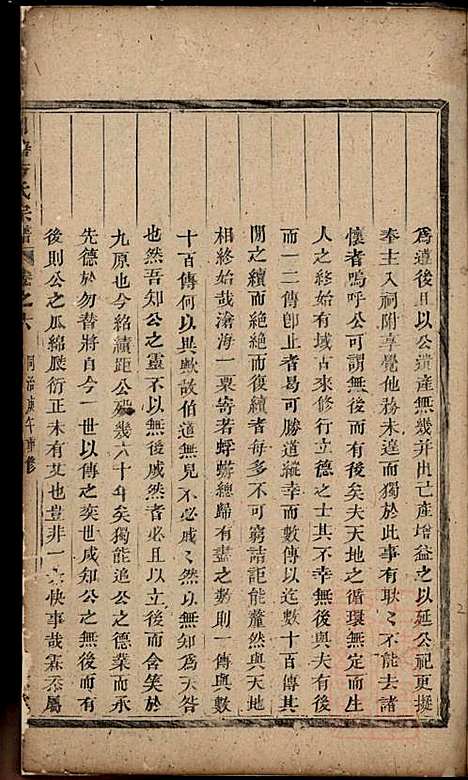 為道後且以公遺產無幾并出己產增益之以延公祀更擬
奉主入祠附享覺他務未遑而獨於此事有耿々不能去諸
懷者嗚呼公可謂無後而有後矣夫天地之循環無定而生
人之終始有域古來修行立德之士其不幸而無後與夫有後
而一二傳卽止者曷可勝道縱幸而數傳以迄數十百傳其
間之續而絕絕而復續者每多不可窮詰詎能虀然與天地
相終始哉滄海一粟寄若蜉蝣總歸有盡之數則一傳與數
十百傳何以異歟故伯道無兒不必戚々然以無知為天咎
也然吾知公之靈不以無後戚然者必且以立後而含笑於
九原也今紹績距公歿幾六十年矣獨能追公之德業而承
先德於勿替將自今一世以傳之奕世咸知公之無後而有
後則公之瓜綿瓞衍正未有艾也豈非一大快事哉霖忝屬
氏宗譜 卷之六 同治庚午重修